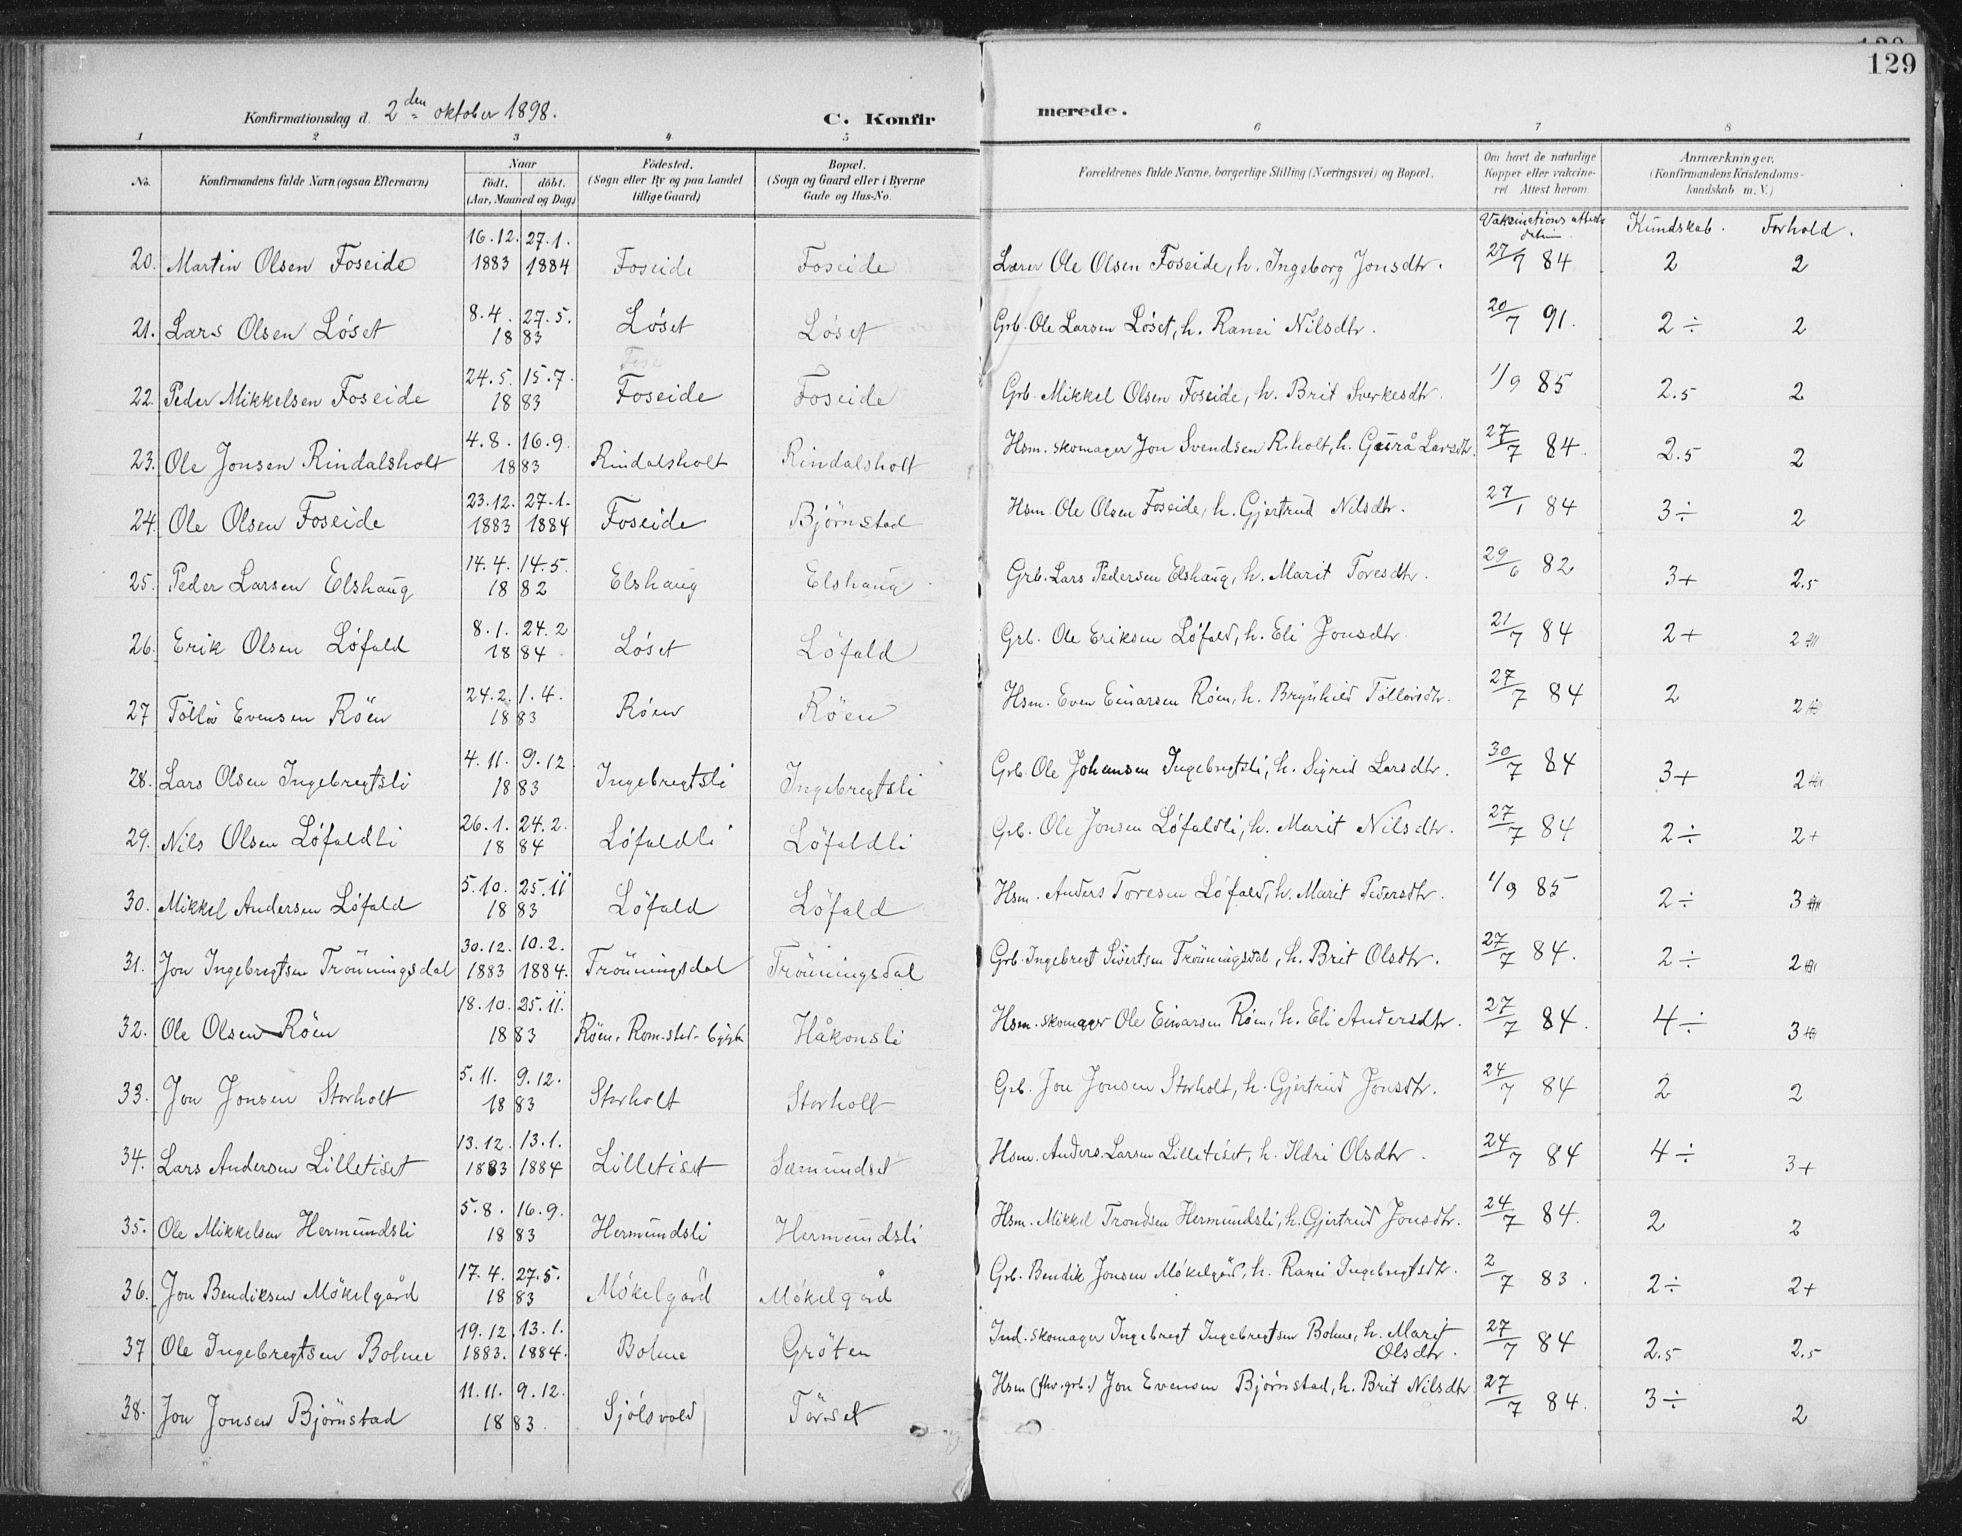 129
Konfirmationsdag d. 2den oktober 1898.
C. Konfirmerede.
1 2 3 4 5 6 7 8
No. Konfirmandens fulde Navn (ogsaa Efternavn) Naar födt. döbt. (Aar, Maaned og Dag) Födested. (Sogn eller By og paa Landet tillige Gaard) Bopæl. (Sogn og Gaard eller i Byerne Gade og Hus-No. Forældrenes fulde Navne, borgerlige Stilling (Næringsvei) og Bopæl. Om havt de naturlige Kopper eller vakcineret. Attest herom. Anmærkninger. (Konfirmandens Kristendomskundskab m. V.)
Kundskab. Forhold.
20. Martin Olsen Foseide 16.12. 1883 27.1. 1884 Foseide Foseide Lærer Ole Olsen Foseide, h. Ingeborg Jonsdtr. 27/7 84 2 2
21. Lars Olsen Löset 8.4. 27.5. 1883 Löset Löset Grb. Ole Larsen Löset, h. Ranei Nilsdtr. 20/7 91. 2÷ 2
22. Peder Mikkelsen Foseide 24.5. 15.7. 1883 Foseide Foseide Grb. Mikkel Olsen Foseide, h. Brit Sverkesdtr. 1/9 85 2.5 2
23. Ole Jonsen Rindalsholt 4.8. 16.9. 1883 Rindalsholt Rindalsholt Hsm. skomager Jon Svendsen R.holt, h. Gurå Larsdtr. 27/7 84. 2.5 2
24. Ole Olsen Foseide 23.12. 1883 27.1. 1884 Foseide Björnstad Hsm. Ole Olsen Foseide, h. Gjertrud Nilsdtr. 27/1 84 3÷ 2
25. Peder Larsen Elshaug 14.4. 14.5. 1882 Elshaug Elshaug Grb. Lars Pedersen Elshaug, h. Marit Toresdtr. 29/6 82 3+ 2.5
26. Erik Olsen Löfald 8.1. 24.2 1884 Löset Löfald Grb. Ole Eriksen Löfald, h. Eli Jonsdtr. 21/7 84 2+ 2
27 Töllöv Evensen Röen 24.2. 1.4. 1883 Röen Röen Hsm. Even Einarsen Röen, h. Brynhild Töllövsdtr. 27/7 84 2 2
28. Lars Olsen Ingebregtsli 4.11. 9.12 1883 Ingebregtsli Ingebregtsli Grb. Ole Johansen Ingebregtsli, h. Sigrid Larsdtr. 30/7 84 3+ 2
29. Nils Olsen Löfaldli 26.1. 24.2. 1884 Löfaldli Löfaldli Grb. Ole Jonsen Löfaldli, h. Marit Nilsdtr. 27/7 84 2÷ 2+
30. Mikkel Andersen Löfald 5.10. 25.11 1883 Löfald Löfald Hsm. Anders Toresen Löfald, h. Marit Pedersdtr. 1/9 85 2÷ 3
31. Jon Ingebregtsen Trönningsdal 30.12. 1883 10.2. 1884. Trönningsdal Trönningsdal Grb. Ingebregt Sivertsen Trönningsdal, h. Brit Olsdtr. 27/7 84. 2÷ 2
32. Ole Olsen Röen 18.10. 25.11. 1883 Röen, Håkonsli Hsm. skomager Ole Einarsen Röen, h. Eli Andersdtr. 27/7 84. 4÷ 3
33. Jon Jonsen Storholt 5.11. 9.12. 1883 Storholt Storholt Grb. Jon Jonsen Storholt, h. Gjertrud Jonsdtr. 24/7 84 2 2
34. Lars Andersen Lilletiset 13.12. 1883 13.1. 1884 Lilletiset Sæmundset Hsm. Anders Larsen Lilletiset, h. Ildri Olsdtr. 24/7 84 4÷ 3+
35. Ole Mikkelsen Hermundsli 5.8. 16.9. 1883 Hermundsli Hermundsli Hsm. Mikkel Trondsen Hermundsli, h. Gjertrud Jonsdtr. 24/7 84. 2 2
36. Jon Bendiksen Mökelgård 17.4. 27.5. 1883 Mökelgård Mökelgård Grb. Bendik Jonsen Mökelgård, h. Ranei Ingebregtsdtr. 2/7 83. 2÷ 2+
37 Ole Ingebregtsen Bolme 19.12. 1883. 13.1. 1884. Bolme Gröten Ind. skomager Ingebregt Ingebregtsen Bolme, h. Marit Olsdtr. 27/7 84 2.5 2.5
38. Jon Jonsen Björnstad 11.11. 9.12. 1883. Sjölsvold Törset Hsm (fhv. grb.) Jon Evensen Björnstad, h. Brit Nilsdtr 27/7 84. 3÷ 2